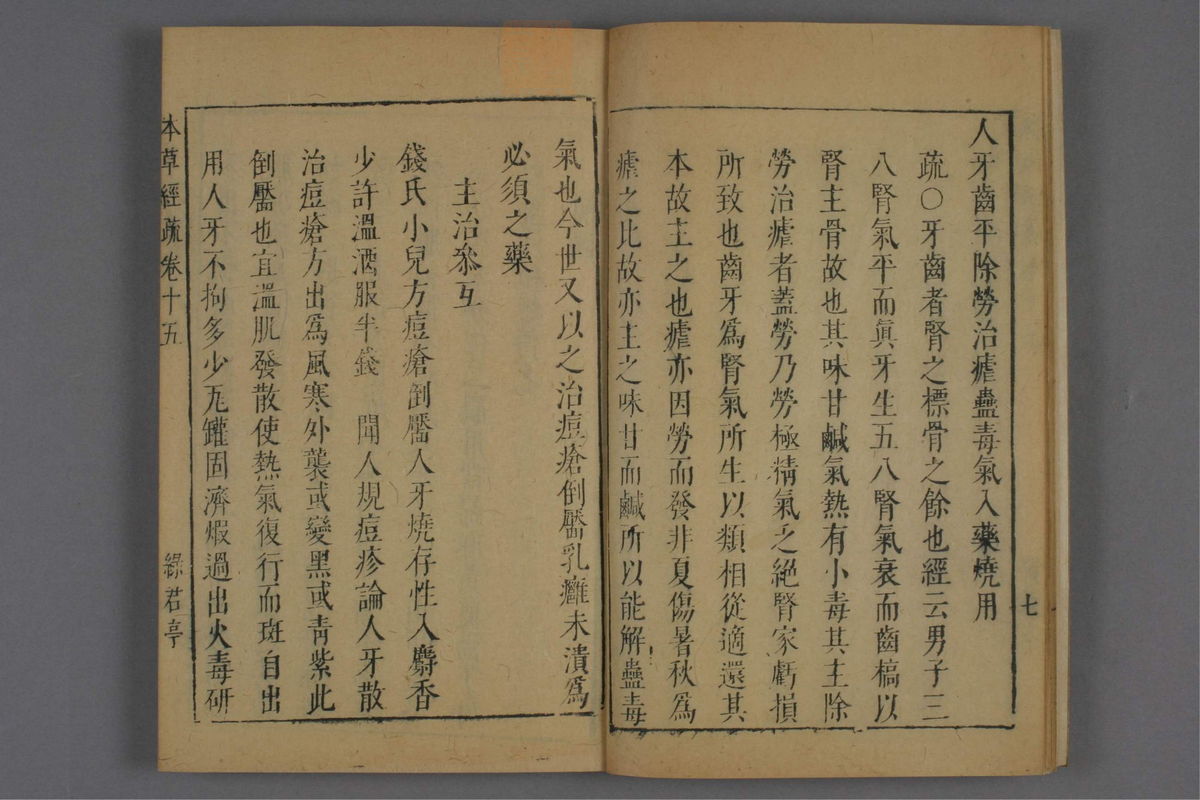 七
人牙齒平除勞治瘧蠱毒氣入藥燒用
疏○牙齒者腎之標骨之餘也經云男子三
八腎氣平而眞牙生五八腎氣衰而齒槁以
腎主骨故也其味甘鹹氣熱有小毒其主除
勞治瘧者蓋勞乃勞極精氣乏絕腎家虧損
所致也齒牙爲腎氣所生以類相從適還其
本故主之也瘧亦因勞而發非夏傷暑秋爲
瘧之比故亦主之味甘而鹹所以能解蠱毒
氣也今世又以之治痘瘡倒黶乳癰未潰爲
必須之藥
主治叅互
錢氏小兒方痘瘡倒黶人牙燒存性入麝香
少許溫酒服半錢 聞人規痘疹論人牙散
治痘瘡方出爲風寒外襲或變黑或靑紫此
倒黶也宜溫肌發散使熱氣復行而斑自出
用人牙不拘多少瓦罐固濟煆過出火毒研
本草經疏卷十五
綠君亭